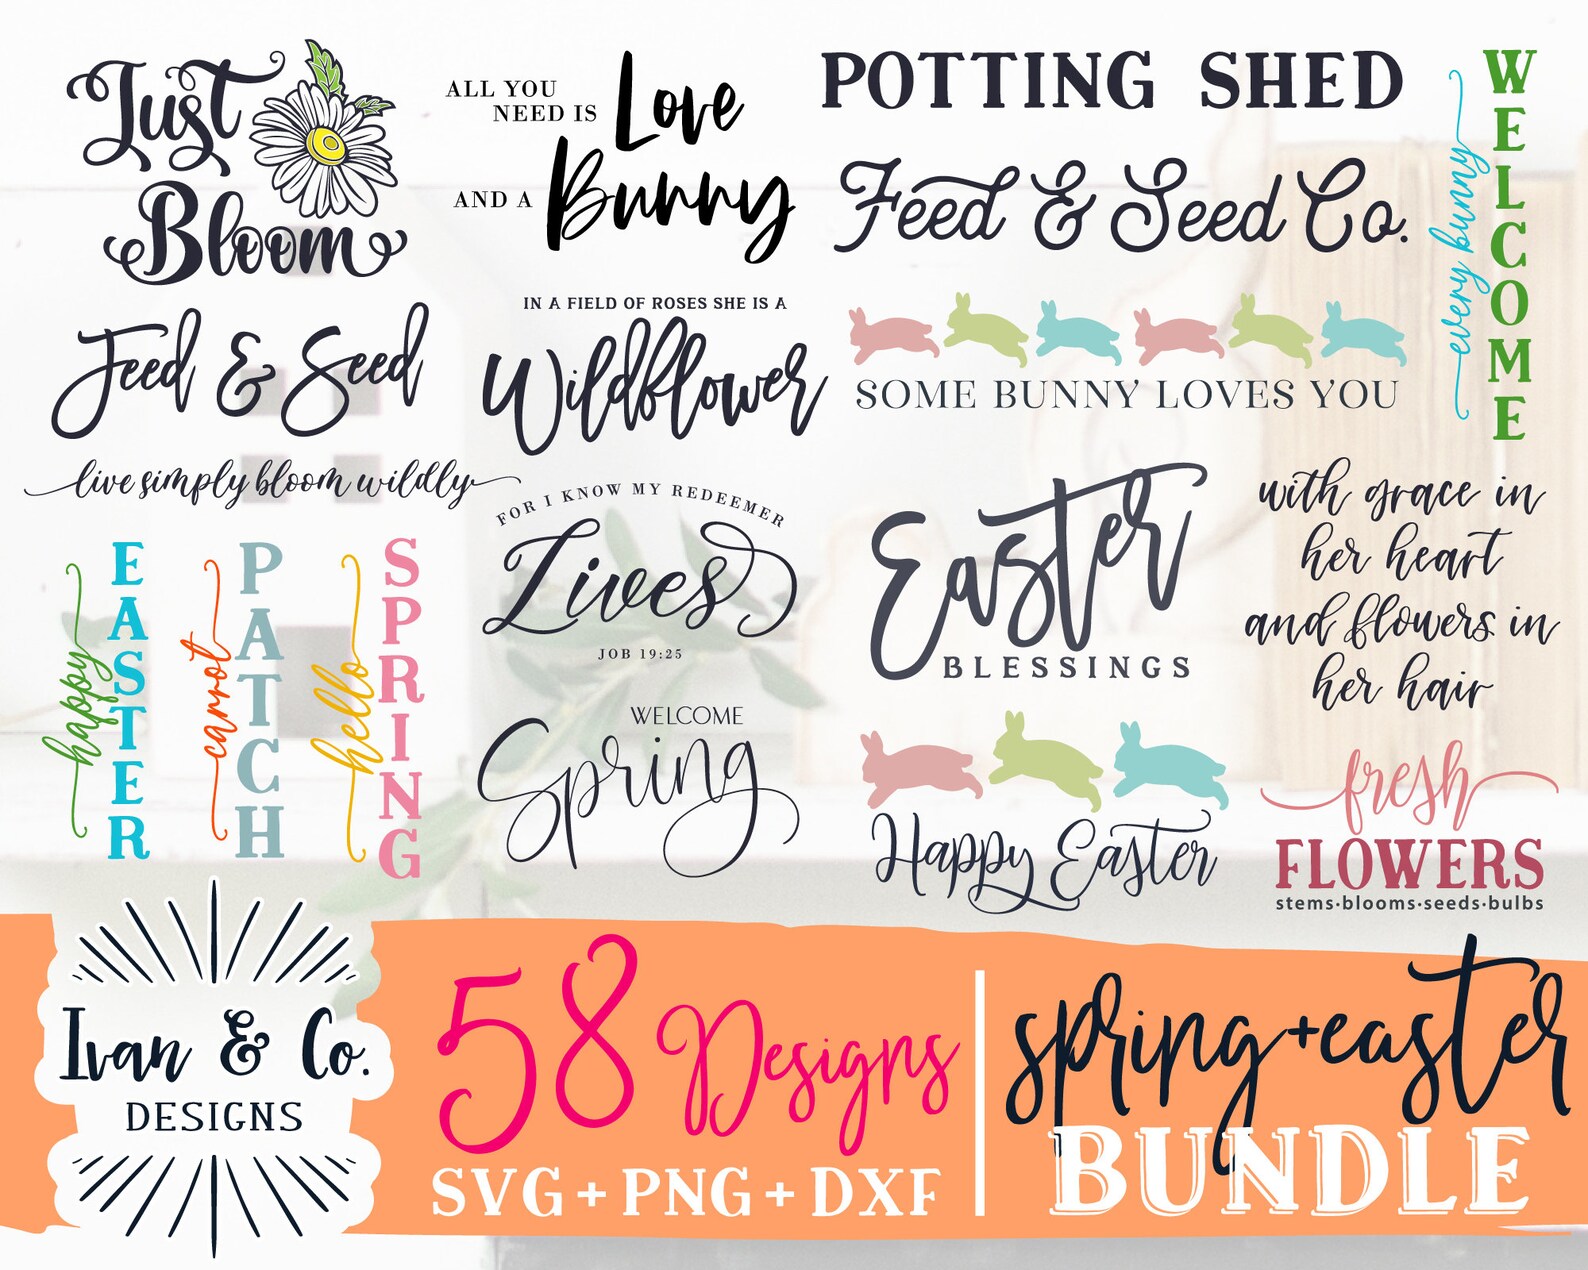 Just
Bloom
ALL YOU
NEED IS
Love
AND A
Bunny
POTTING SHED
Feed & Seed Co.
WELCOME
every bunny
Feed & Seed
IN A FIELD OF ROSES SHE IS A
Wildflower
SOME BUNNY LOVES YOU
live simply bloom wildly
FOR I KNOW MY REDEEMER
Lives
JOB 19:25
Easter
BLESSINGS
with grace in
her heart
and flowers in
her hair
happy
EASTER
carrot
PATCH
hello
SPRING
WELCOME
Spring
Happy Easter
fresh
FLOWERS
stems·blooms·seeds·bulbs
Ivan & Co.
DESIGNS
58 Designs
SVG+PNG+DXF
spring+easter
BUNDLE